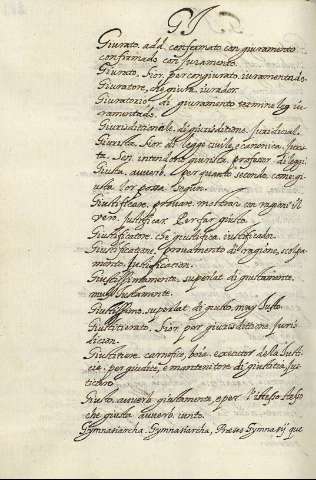 GI
Giurato, add. confermato con giuramento
confirmado con juramento.
Giurato, Sior. per congiurato, iuramentado.
Giuratore, che giura, iurador.
Giuratorio di giuramento termine leg. iu
ramentado.
Giurisdittionale, di giurisditione, jurisdicial.
Giurista, Sior. di legge civile, e canonica, juris
ta. Sen. intendente giurista, profesor di leggi.
Giusta, auverb. Per quanto, secondo, come gi
usta lor possa. segun.
Giustificare. provare, mostrar con ragioni il
vero. Justificar. Per far giusto.
Giustificatore. che giustifica, iustificador.
Giustificatione, provamento di ragione, scolpa
mento. Justificacion.
Giustissimamente, superlat. di giustamente,
muy justamente.
Giustissimo, superlat. di giusto, muy justo.
Giustitierato, Sior. per giurisdittione, juris
dicion.
Giustitiere carnefice, boia, executor della justi
cia, per giudice, e mantenitore di giustitia, jus
ticiero.
Giusto, auverb. giustamente, e per l'istesso
che giusta auverb. iusto.
Gymnasiarcha, Gymnasiarcha, Gymnasij que